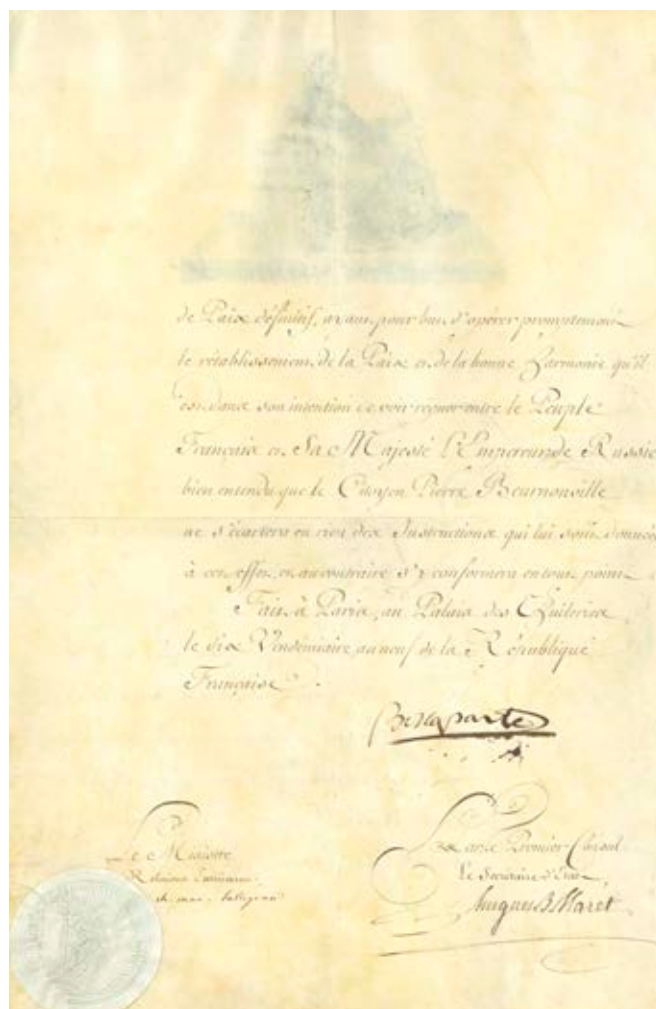 de Paix définitif, ayant pour but d'opérer promptement
le rétablissement de la Paix et de la bonne harmonie qu'il
est dans son intention de voir regner entre le Peuple
Français et Sa Majesté l'Empereur de Russie
bien entendu que le Citoyen Pierre Beurnonville
ne s'écartera en rien des Instructions qui lui sont données
à cet effet, et au contraire s'y conformera en tout point
Fait à Paris, au Palais des Thuileries
le dix Vendémiaire, an neuf de la République
Française.
Bonaparte
Le Ministre
Relations Extérieures
ch. mau. talleyrand
Par le Premier Consul
Le Secrétaire d'Etat
Hugues B. Maret